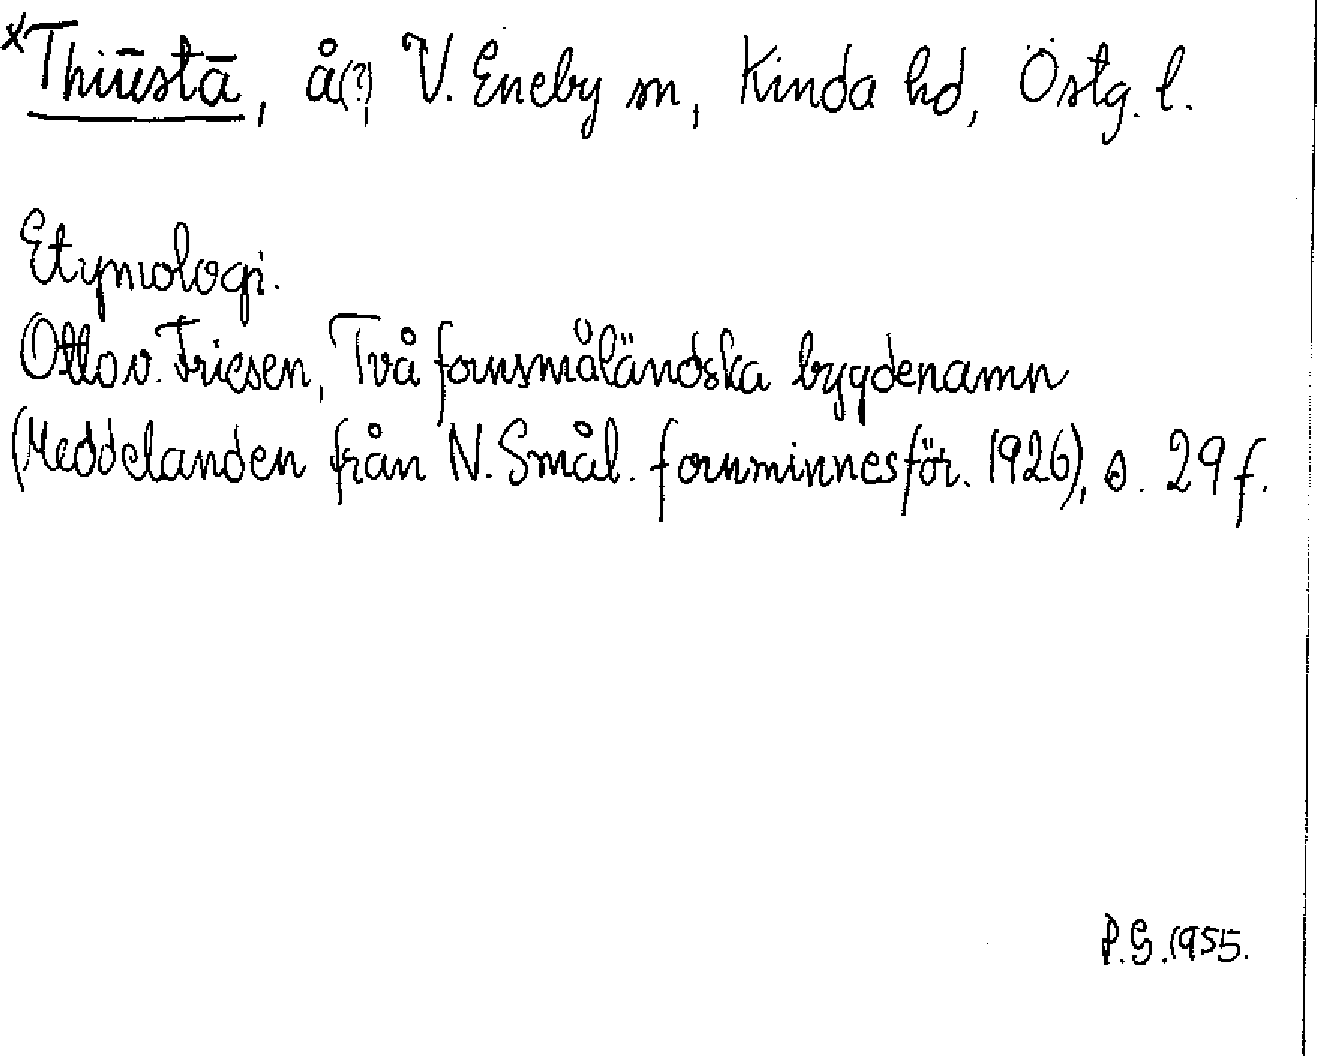 *Thiūstā, å(?) V. Eneby sn, Kinda hd, Östg. l.
Etymologi.
Otto v. Friesen, Två fornsmåländska bygdenamn
(Meddelanden från N. Smål. fornminnesför. 1926), s. 29 f.
P.G. 1955.